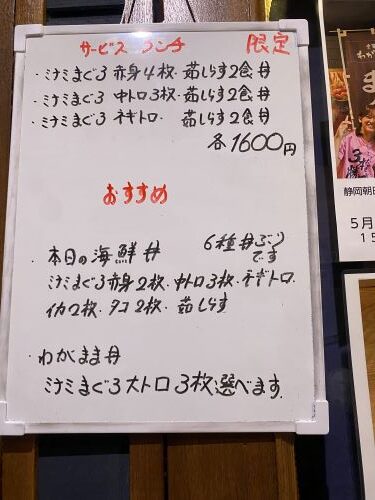 サービスランチ 限定
・ミナミまぐろ 赤身4枚・茹しらす2食丼
・ミナミまぐろ 中トロ3枚・茹しらす2食丼
・ミナミまぐろ ネギトロ・茹しらす2食丼
各1600円
おすすめ
・本日の海鮮丼 6種丼ぶりです
ミナミまぐろ赤身2枚・中トロ3枚・ネギトロ・
イカ2枚・タコ2枚・茹しらす
・わがまま丼
ミナミまぐろ大トロ3枚選べます。
静岡朝日
5月